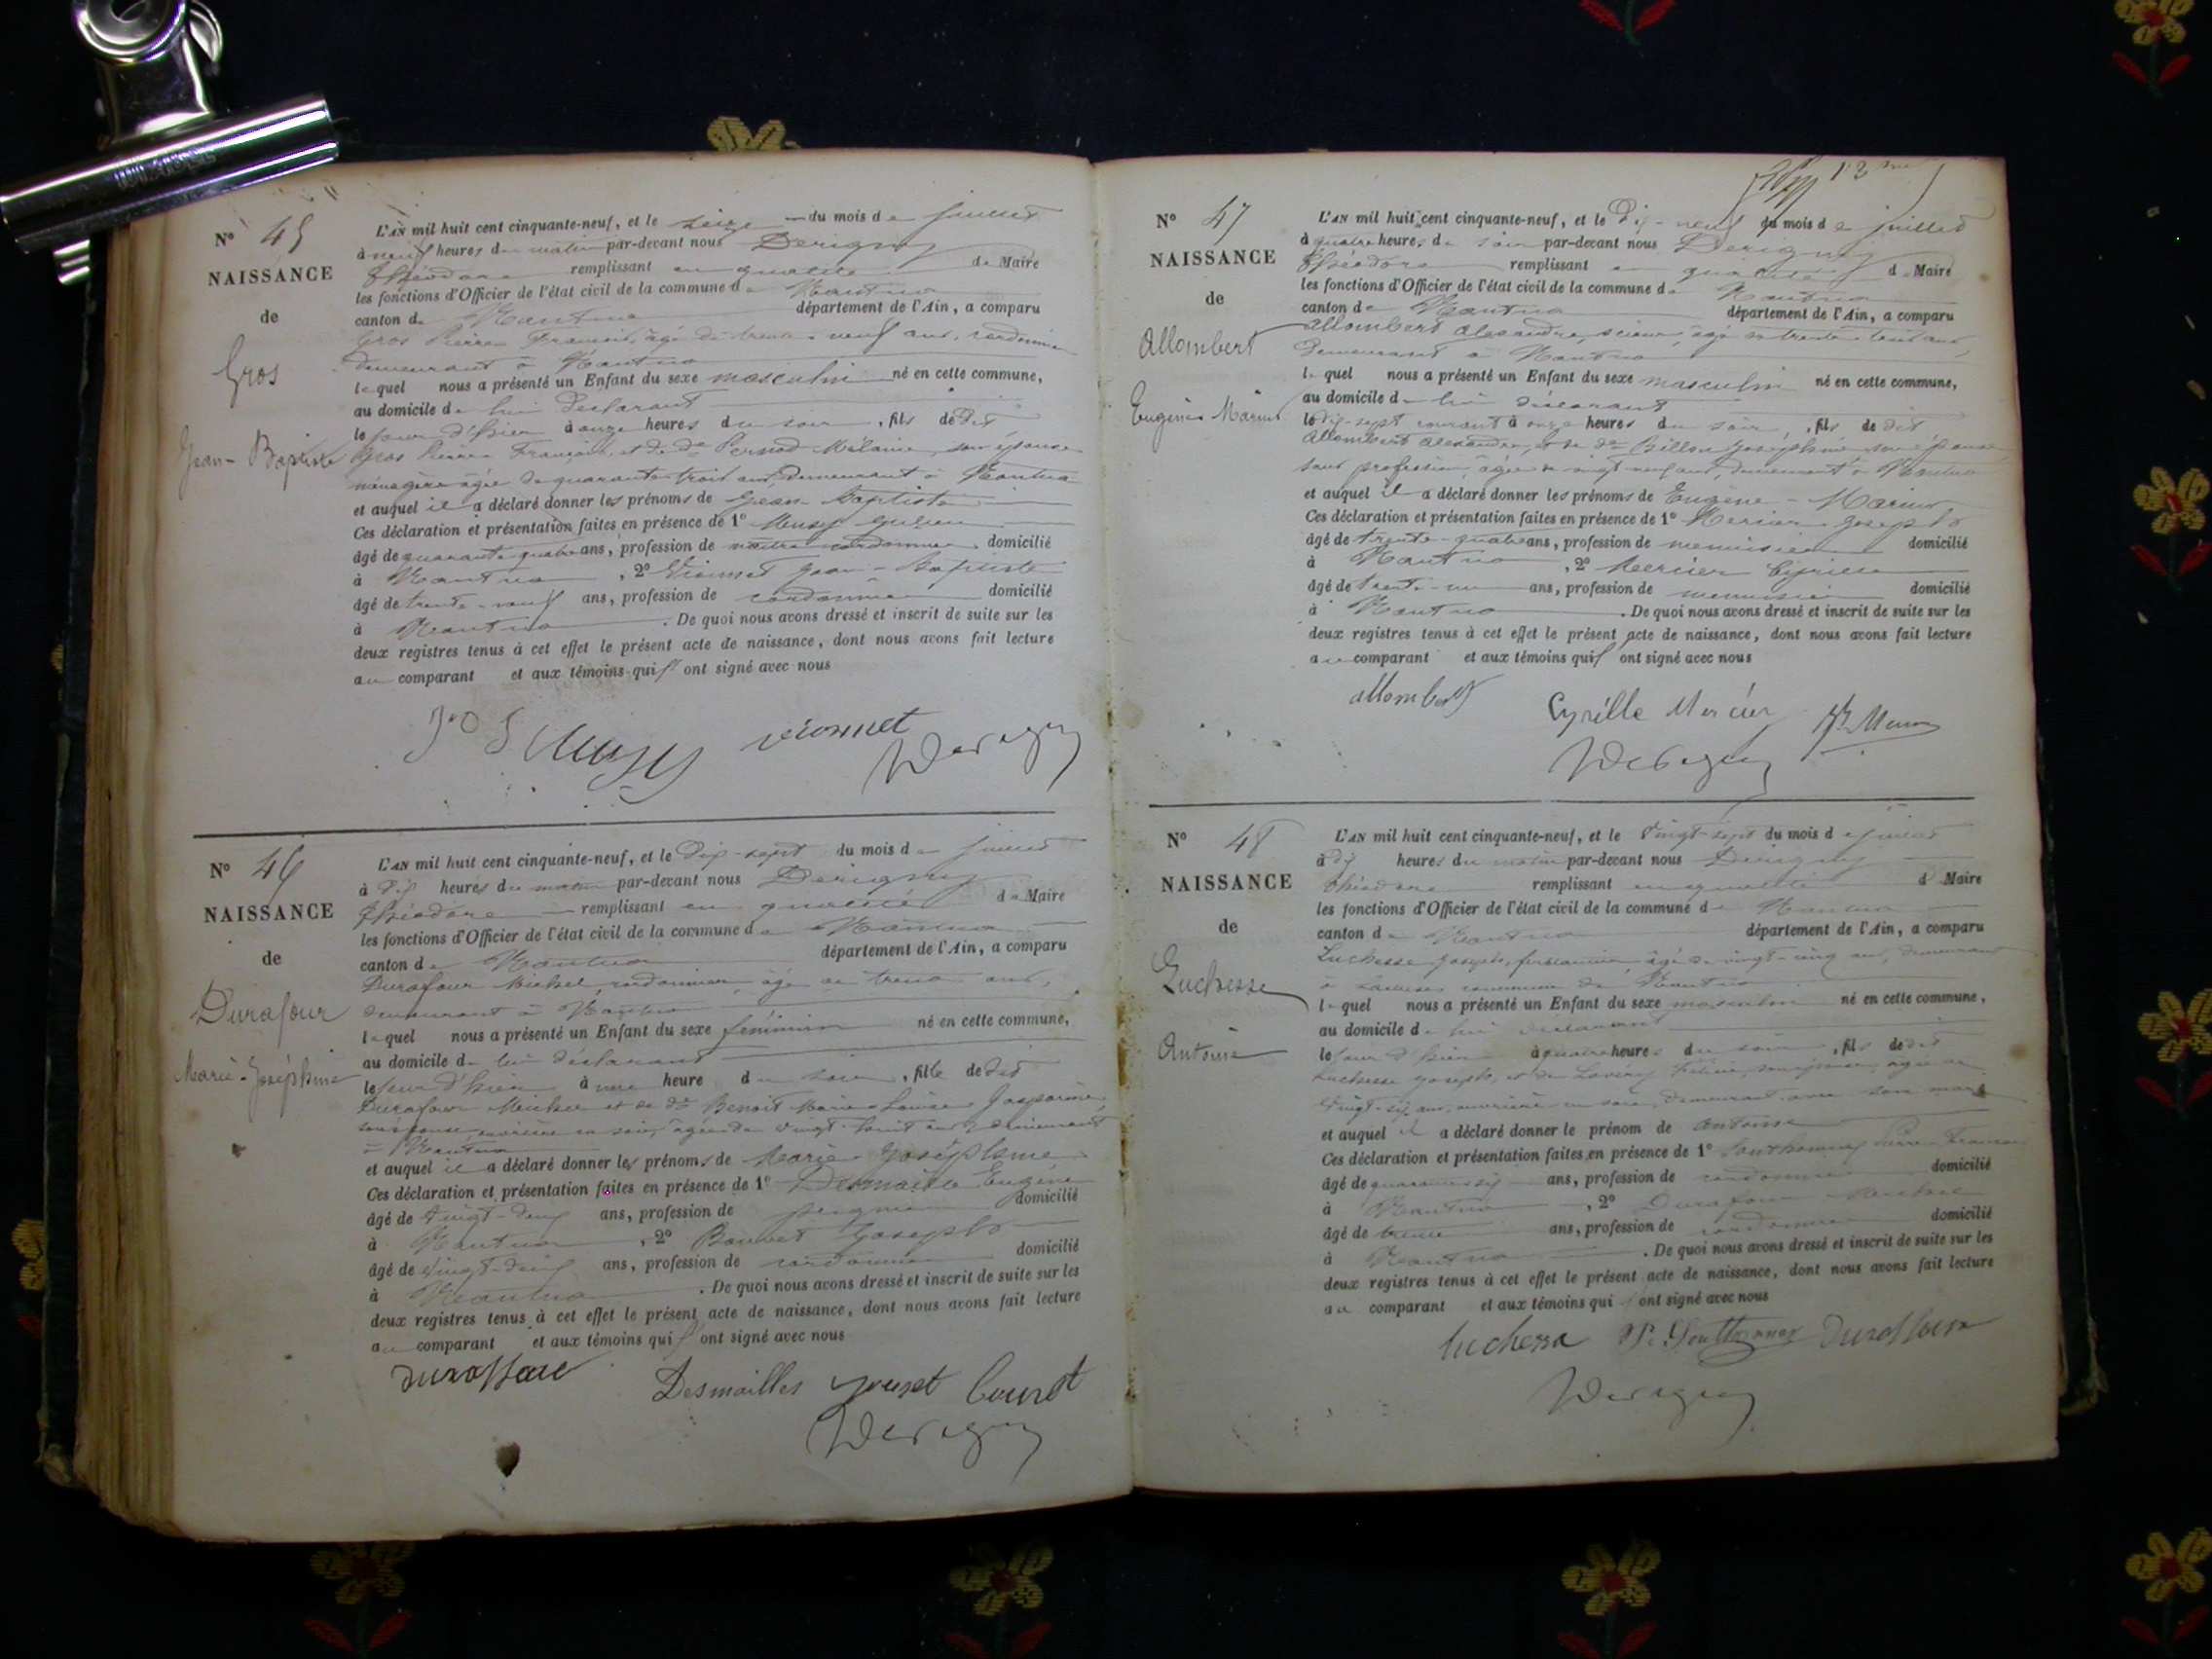 N° 45
NAISSANCE
de
Gros
Jean-Baptiste
L'AN mil huit cent cinquante-neuf, et le seize du mois de juillet
à neuf heures du matin par-devant nous Derigny
Théodore remplissant en qualité de Maire
les fonctions d'Officier de l'état civil de la commune de Nantua
canton de Nantua département de l'Ain, a comparu
Gros Pierre François, âgé de trente-neuf ans, cordonnier
demeurant à Nantua
lequel nous a présenté un Enfant du sexe masculin né en cette commune,
au domicile de lui déclarant
le jour d'hier à onze heures du soir, fils de dit
Gros Pierre François, et de de Pernod Mélanie, son épouse
ménagère âgée de quarante trois ans, demeurant à Nantua
et auquel il a déclaré donner les prénoms de Jean-Baptiste
Ces déclaration et présentation faites en présence de 1°
âgé de quarante-quatre ans, profession de maître cordonnier domicilié
à Nantua, 2° Vionnet Jean-Baptiste
âgé de trente-neuf ans, profession de cordonnier domicilié
à Nantua. De quoi nous avons dressé et inscrit de suite sur les
deux registres tenus à cet effet le présent acte de naissance, dont nous avons fait lecture
au comparant et aux témoins qui ont signé avec nous
vionnet
Derigny
N° 46
NAISSANCE
de
Durafour
Marie-Joséphine
L'AN mil huit cent cinquante-neuf, et le dix-sept du mois de juillet
à dix heures du matin par-devant nous Derigny
Théodore remplissant en qualité de Maire
les fonctions d'Officier de l'état civil de la commune de Nantua
canton de Nantua département de l'Ain, a comparu
Durafour Michel, cordonnier, âgé de trente ans,
demeurant à Nantua
lequel nous a présenté un Enfant du sexe féminin né en cette commune,
au domicile de lui déclarant
le jour d'hier à une heure du soir, fille de dit
Durafour Michel et de de Benoit Marie Louise Gasparine,
son épouse, ouvrière en soie, âgée de vingt-huit ans, demeurant
à Nantua
et auquel il a déclaré donner les prénoms de Marie Joséphine
Ces déclaration et présentation faites en présence de 1° Desmailles Eugène
âgé de vingt-deux ans, profession de domicilié
à Nantua, 2° Bouvet Joseph
âgé de vingt-deux ans, profession de cordonnier domicilié
à Nantua. De quoi nous avons dressé et inscrit de suite sur les
deux registres tenus à cet effet le présent acte de naissance, dont nous avons fait lecture
au comparant et aux témoins qui ont signé avec nous
duraffour Desmailles
Derigny
N° 47
NAISSANCE
de
Allombert
Eugène Marius
L'AN mil huit cent cinquante-neuf, et le dix-neuf du mois de juillet
à quatre heures du soir par-devant nous Derigny
Théodore remplissant en qualité de Maire
les fonctions d'Officier de l'état civil de la commune de Nantua
canton de Nantua département de l'Ain, a comparu
Allombert Alexandre, scieur, âgé de trente-huit ans,
demeurant à Nantua
lequel nous a présenté un Enfant du sexe masculin né en cette commune,
au domicile de lui déclarant
le dix-sept courant à onze heures du soir, fils de dit
Allombert Alexandre, et de de Billon Joséphine son épouse,
sans profession, âgée de vingt-neuf ans, demeurant à Nantua
et auquel il a déclaré donner les prénoms de Eugène-Marius
Ces déclaration et présentation faites en présence de 1° Mercier Joseph
âgé de trente-quatre ans, profession de menuisier domicilié
à Nantua, 2° Mercier Cyrille
âgé de trente-un ans, profession de menuisier domicilié
à Nantua. De quoi nous avons dressé et inscrit de suite sur les
deux registres tenus à cet effet le présent acte de naissance, dont nous avons fait lecture
au comparant et aux témoins qui ont signé avec nous
allombert Cyrille Mercier
Derigny
N° 48
NAISSANCE
de
Luchesse
Antoine
L'AN mil huit cent cinquante-neuf, et le vingt-sept du mois de juillet
à dix heures du matin par-devant nous Derigny
Théodore remplissant en qualité de Maire
les fonctions d'Officier de l'état civil de la commune de Nantua
canton de Nantua département de l'Ain, a comparu
Luchesse Joseph, ferblantier, âgé de vingt-cinq ans, demeurant
à commune de Nantua
lequel nous a présenté un Enfant du sexe masculin né en cette commune,
au domicile de lui déclarant
le jour d'hier à quatre heures du soir, fils de dit
Luchesse Joseph, et de son épouse, âgée de
vingt-six ans, ouvrière en soie, demeurant avec son mari
et auquel il a déclaré donner le prénom de Antoine
Ces déclaration et présentation faites en présence de 1° Southonnax Pierre François
âgé de quarante-six ans, profession de cordonnier domicilié
à Nantua, 2° Durafour Michel
âgé de trente ans, profession de cordonnier domicilié
à Nantua. De quoi nous avons dressé et inscrit de suite sur les
deux registres tenus à cet effet le présent acte de naissance, dont nous avons fait lecture
au comparant et aux témoins qui ont signé avec nous
Luchessa Southonnax Duraffour
Derigny